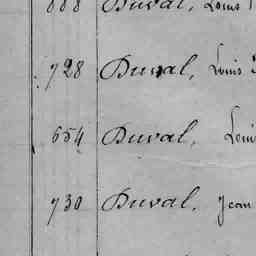 888 Duval, Louis
728 Duval, Louis
654 Duval, Louis
730 Duval, Jean